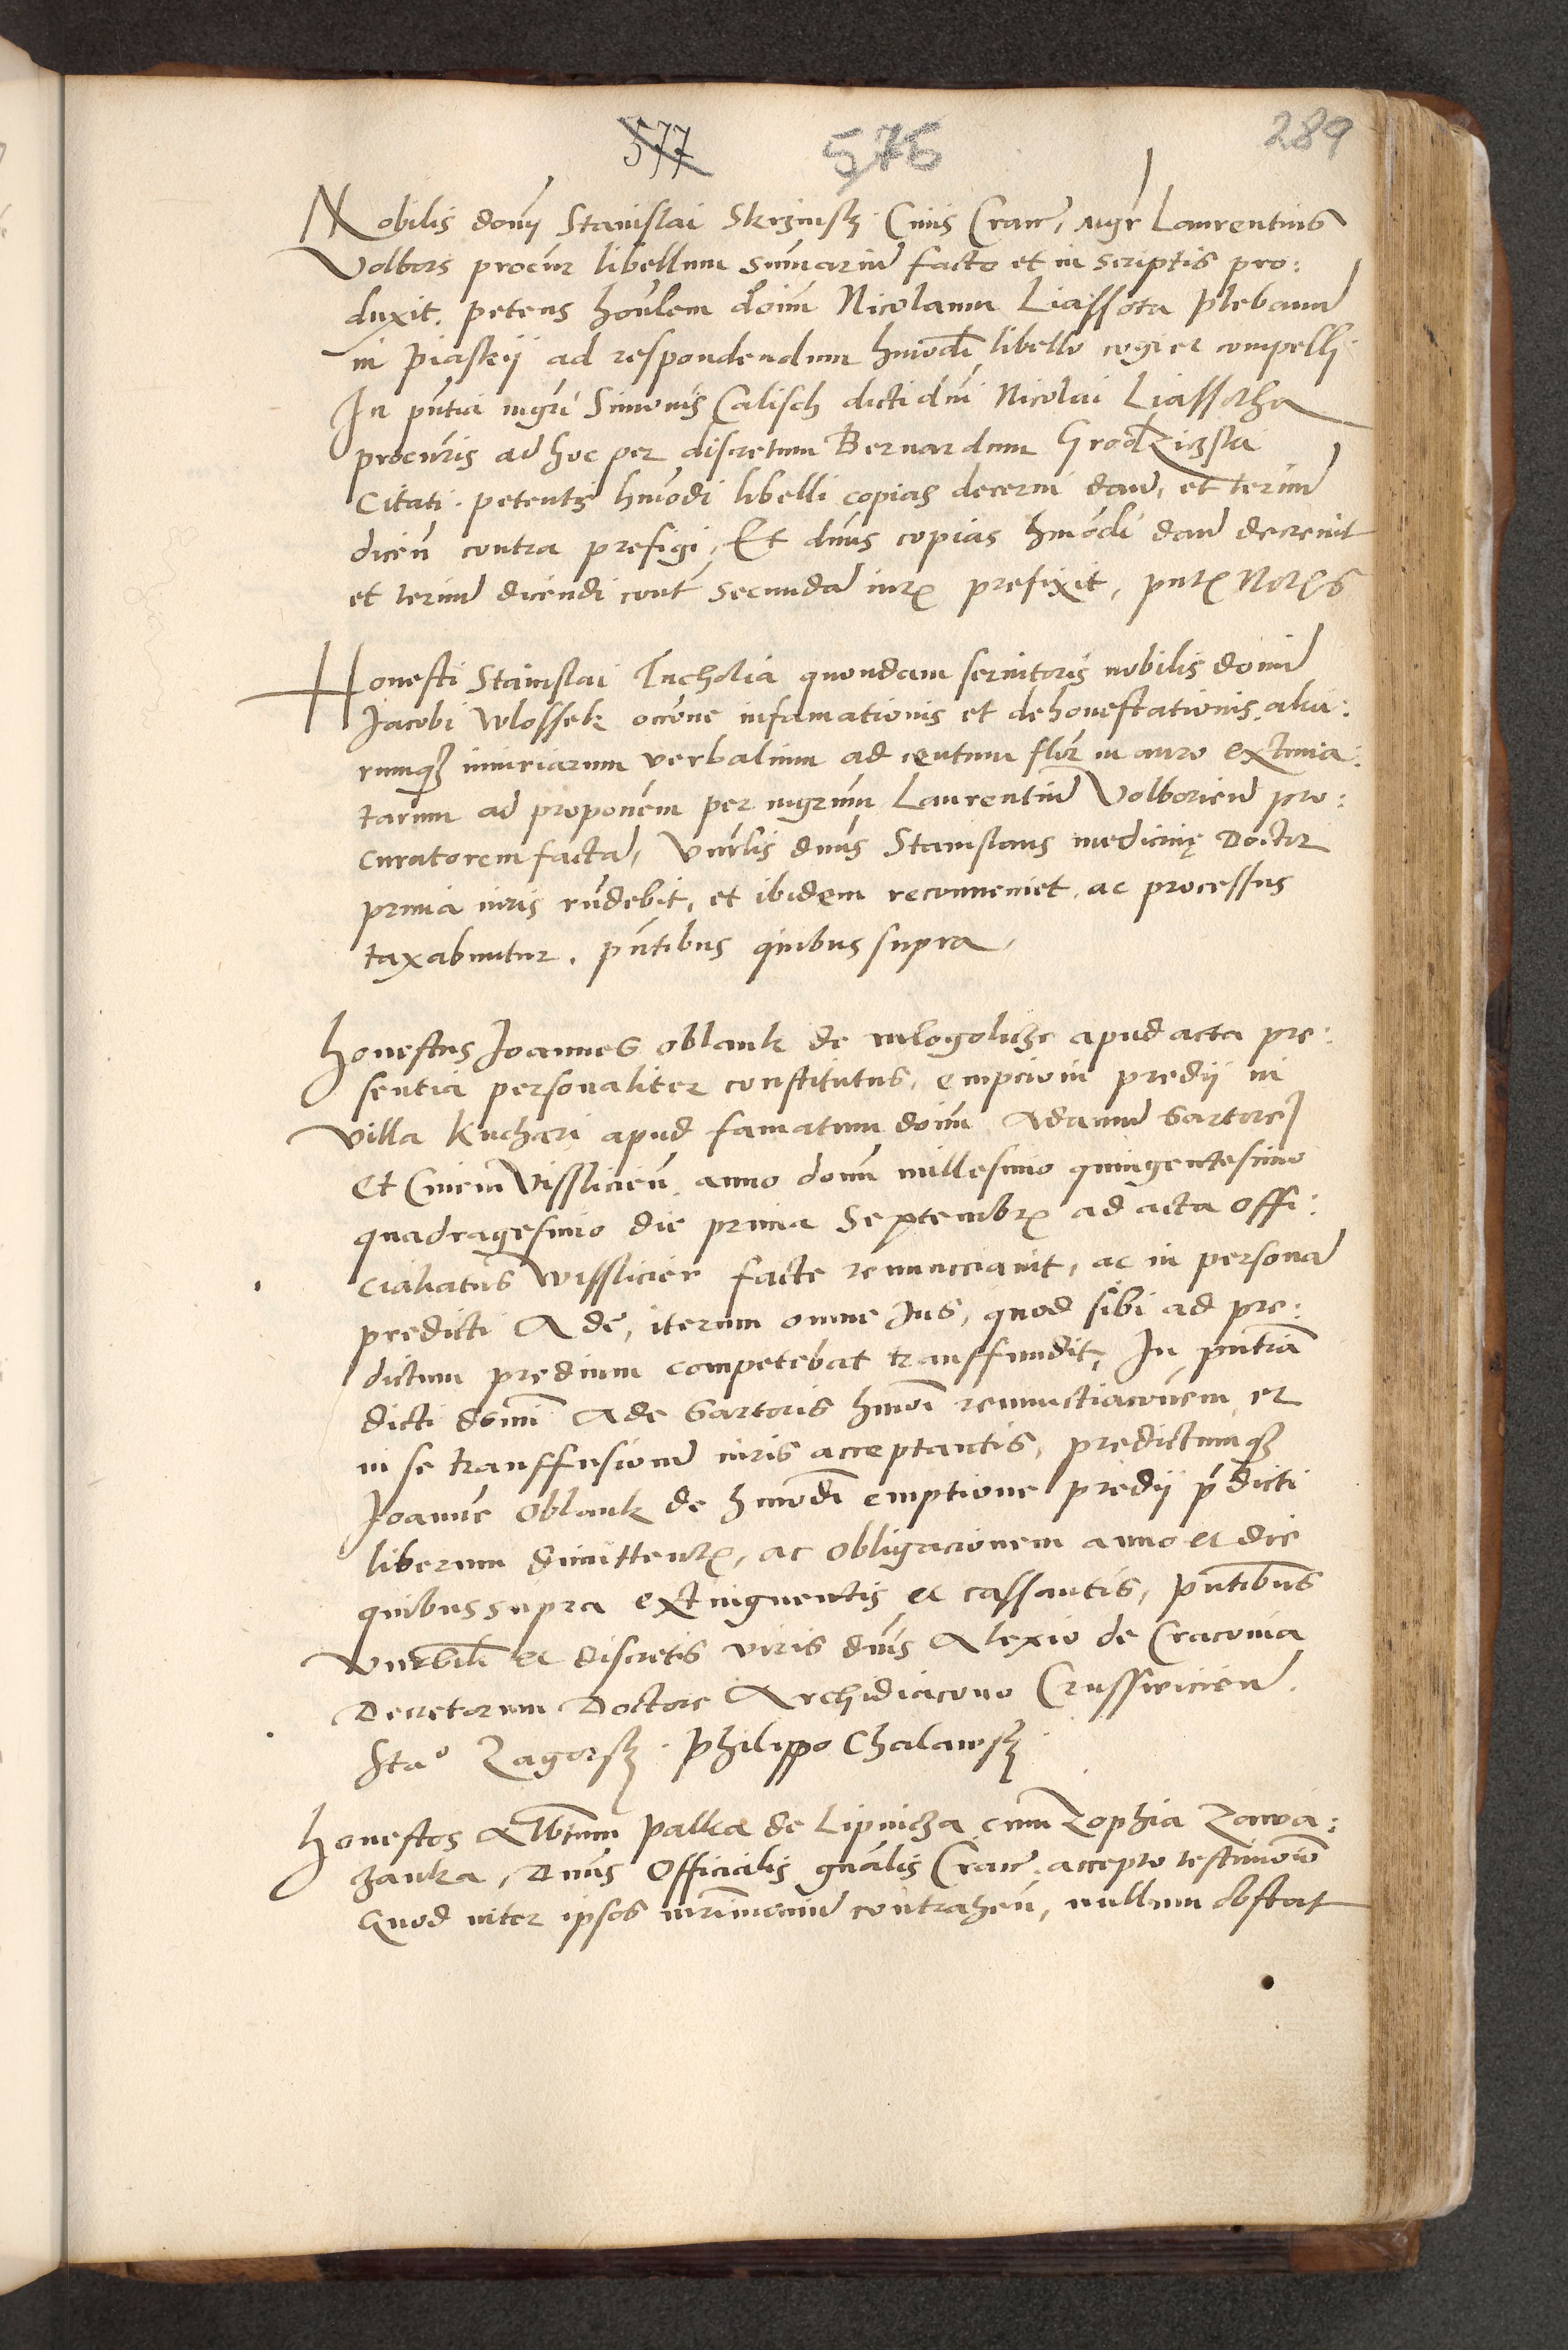 577 576 289
Nobilis domi Stanislai Skrzinsky Civis Cracie, mgr Laurentius
Volbors procur libellum sumarium facto et in scriptis pro:
duxit, petens honlem doim Nicolaum Liassota plebanum
in Piaskij ad respondendum hmodi libello cogi et compelli
In pntia mgri Simonis Calisch dicti dni Nicolai Liassotha
procuris ad hoc per discretum Bernardum Grodziszki
Citati petentis hmodi libelli copias decerni dari, et terium
dicen contra prefigi, Et dnus copias hmodi dari decrevit
et terium dicendi cont secundam iuris prefixit, pntis Notris
Honesti Stanislai Tucholia quondam servitoris nobilis domi
Jacobi Wlossek occone infamationis et dehonestationis, alia:
rumq iniuriarum verbalium ad centum flor in auro extima:
tarum ad proponem per mgrum Laurentium Volborien pro:
curatorem facta, Vnrlis dnus Stanislaus medicinę Doctor
prima iuris rndebit, et ibidem reconveniet, ac processus
taxabuntur, pntibus quibus supra,
Honestus Joannes Oblank de mlogolicze apud acta pre:
sentia personaliter constitutus, empcioni predij in
villa Kuchari apud famatum doim Adamum Sartore
Et Civem Visslicien, anno domi millesimo quingentesimo
quadragesimo die prima Septembris ad acta offi:
cialiatus Visslicien facte renuncciavit, ac in personam
predicti Ade, iterum omne Jus, quod sibi ad pre:
dictum predium competebat transffundit, In pntia
dicti domi Ade Sartoris hmoi renunctiaconem et
in se transffusionem iuris acceptantis, predictumq
Joanne Oblank de hmodi emptione predij pdicti
liberum dimittentis, ac obligacionem anno et die
quibus supra extinguentis et cassantis, pntibus
Vnrbili et discretis viris dnis Alexio de Cracovia
Decretorum Doctore Archidiacono Crussvicien
Stao Zagorsky Philippo Chalawsky
Honestos Albertum Palka de Lipnicza cum Zophia Zawa:
zanka, Dnus Officialis gnalis Cracie, accepto testimonio
Quod inter ipsos mrimonium contrahen, nullum obstat